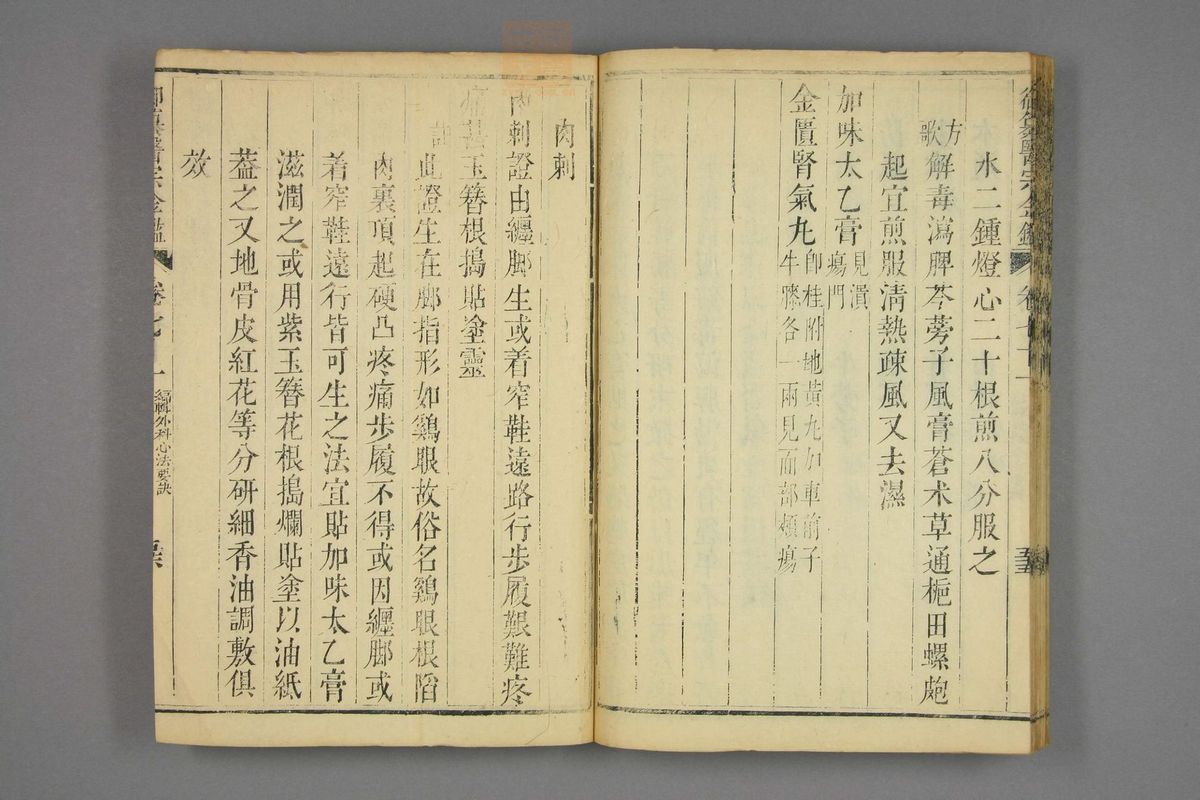 御纂醫宗金鑑 卷七十一 五
水二鍾燈心二十根煎八分服之
方歌
解毒瀉脾芩蒡子風膏蒼朮草通梔田螺皰
起宜煎服清熱疎風又去濕
加味太乙膏見潰瘍門
金匱腎氣丸卽桂附地黃丸加車前子
牛膝各一兩見面部頰瘍
肉刺
肉刺證由纏脚生或着窄鞋遠路行步履艱難疼
痛甚玉簪根搗貼塗靈
註
此證生在脚指形如鷄眼故俗名鷄眼根陷
肉裏頂起硬凸疼痛步履不得或因纏脚或
着窄鞋遠行皆可生之法宜貼加味太乙膏
滋潤之或用紫玉簪花根搗爛貼塗以油紙
葢之又地骨皮紅花等分研細香油調敷俱
效
御纂醫宗金鑑 卷七十一 編輯外科心法要訣